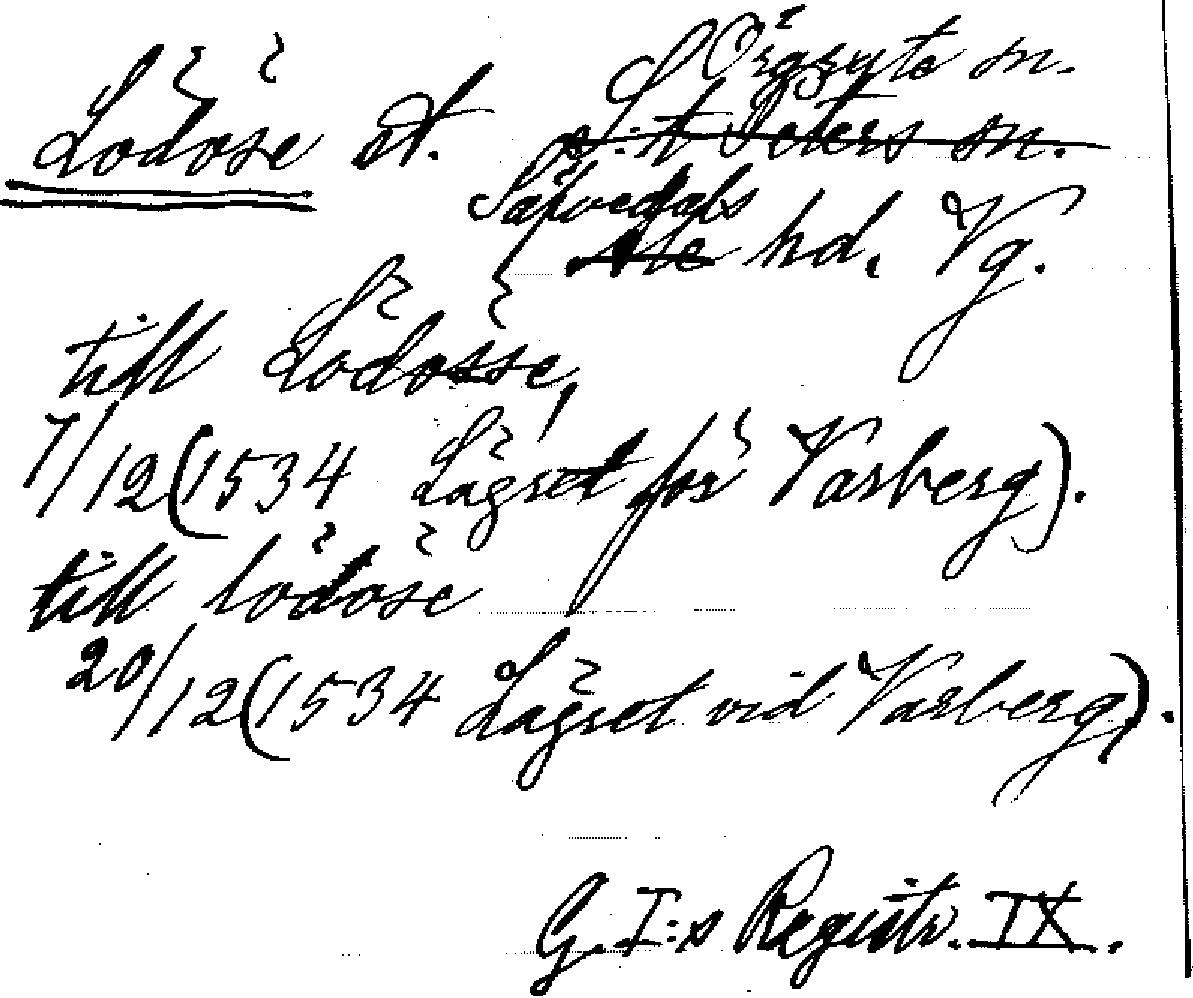 Örgryte sn.
Lödöse st. S:t Peters sn.
Sävedals
Ale hd. Vg.
till Lödösse,
7/12 (1534 Lägret för Varberg).
till lödöse
20/12 (1534 Lägret vid Varberg).
G. I:s Registr. IX.